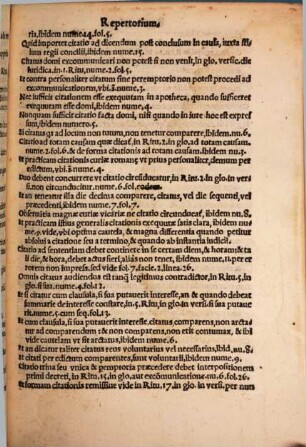 Repertorium.
ria, ibidem nume.14.fol.5.
Quid importet citatio ad dicendum post conclusum in causa, iuxta
regii consilii, ibidem nume.15.
Citatus domi excommunicari non potest si non venit, in glo. versic. dis
iuridica. in.1.Ritu, nume.2.fol.5.
Et contra personaliter citatum sine peremptorio non potest procedi ad
excommunicationem, vbi.s. nume.3.
Nec iufficit citationem esse exequutam in apotheca, quando sufficeret
exequutam esse domi, ibidem nume.4.
Nunquam sufficit citatio facta domi, nisi quando in iure hoc est expres
sum, ibidem numero.5.
Si citatus qr ad locum non tutum, non tenetur comparere, ibidem.nu.6.
Citatio ad totam causam quæ dicaf, in Ritu.2. in glo. ad totam causam
nume.1.fol.6. & de forma citationis ad totam causam, ibidem nu.2.
Et practicam citationis curiæ romanę vt prius personaliter, demum per
edictum, vbi.s nume.4.
Duo debent concurrere vt citatio circūducatur, in Ritu.2 in glo. in ver
si.non circunducitur.nume.6.fol.eodem.
Et an teneatur illa die decima comparere citatus, vel die sequenti, vel
præcedenti, ibidem nume.7.fol.7.
Obseruātia magnæ curiæ vicariæ ne citatio circunducaf, ibidem nu.8.
Et practicam ibi, & generalis citationis exequutæ fatis clara, ibidem nu
me.9. videbis, quoad omnia capitula, & magna differentia quando petitur
absolui a citatione seu a termino, & quando ab instantia iudicii.
Citatio ad sententiam debet continere in se certam diem, & horam, & ta
li die, & hora, debet actus fieri, alias non tenet, ibidem nume.11. per et
totem non impres. sed vide fol.7.colu.2.linea.26.
Omnis citatus audiendus est tanq̄ legitimus contradictor, in Ritu.5. in
glo. si sua.nume.4.fol.12.
Et si citatur cum clausula, si sua putauerit interesse, an & quando debeat
summarie de interesse constare, in.5.Ritu, in glo in versi. si sua putaue
rit.nume.5.cum seq.fol.13.
Et cum clausula, si sua putauerit interesse, citatus, comparens, non arcta
tur ad comparendum: & non comparens, non est contumax, & ibi
vide cautelam vt sic arctatus, ibidem nume.6.
Et an dicatur taliter citatus reus voluntarius vel necessarius, ibid.nu.8.
Et citati per edictum comparentes, sunt voluntarii, ibidem nume.9.
Citatio trina seu vnica & peremptoria præcedere debet interpositionem
primi decreti, in Ritu.15. in glo. aut excōmunicatione.nu.6.fol.26.
Et formam citationis remissiue vide in Ritu.17. in glo. in versi. per nun